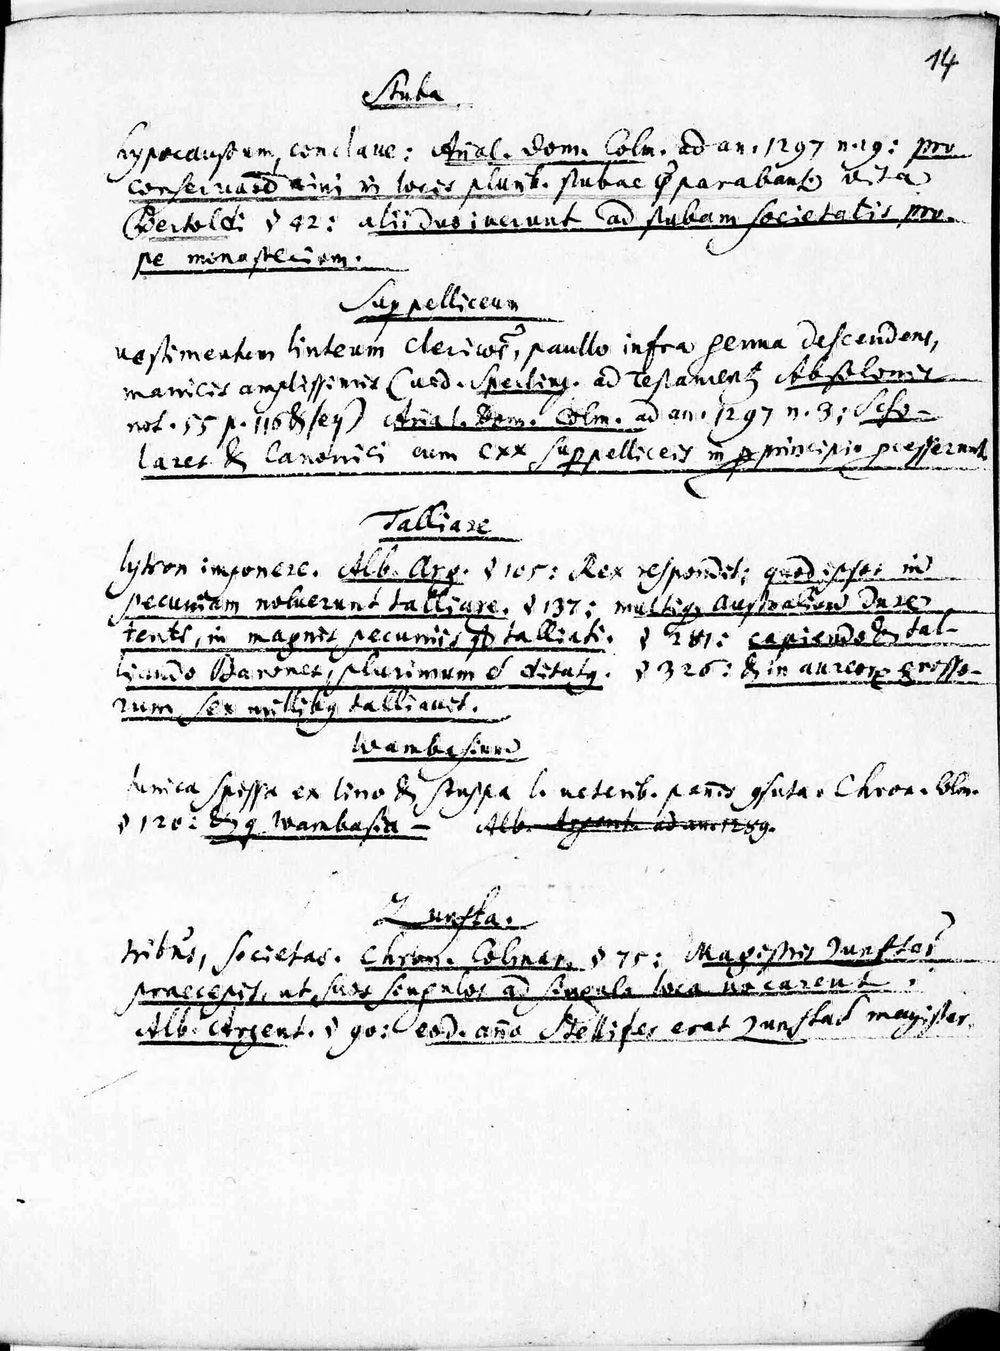 14
Stuba
hypocaustum, conclave: Añal. Dom. Colm. ad an. 1297 n. 19: pro
vini in locis plurib. stubae p̃parabant vita
Bertoldi § 42: alii duo iverunt ad stubam societatis pro-
pe monasterium.
Suppelliceum
vestimentum linteum clericor̃, paullo infra genua descendens,
manicis amplissimis (ved. Sperling. ad Testament Absolonis
not. 55 p. 116 & seq) Añal. Dom. Colm. ad an. 1297 n. 3: Scho-
lares & Canonici cum CXX suppelliceis in principio
Talliare
lytron imponere. Alb. Arg. § 105: Rex respondit; quod ipsos in
pecuniam noluerunt talliare. § 137: multiq Australium
tenti, in magnis pecuniis talliati. § 281: capiendo & tal-
liando Barones, plurimum ditatq. § 326: & in aureor grosso-
rum sex millibq talliavit.
Wambasium
tunica spissa ex lino & stuppa l. veterib. pañis 9suta. Chron. Colm.
§ 120: wambasia — Alb. Argent. ad an. 1289.
Zunfta.
tribus, societas. Chron. Colmar. § 75: Magistris zunftar̃
praecepit, ut suos singulos ad singula loca vocarent;
Alb. Argent. § 90: eod. año Stellifer erat zunftar magister.